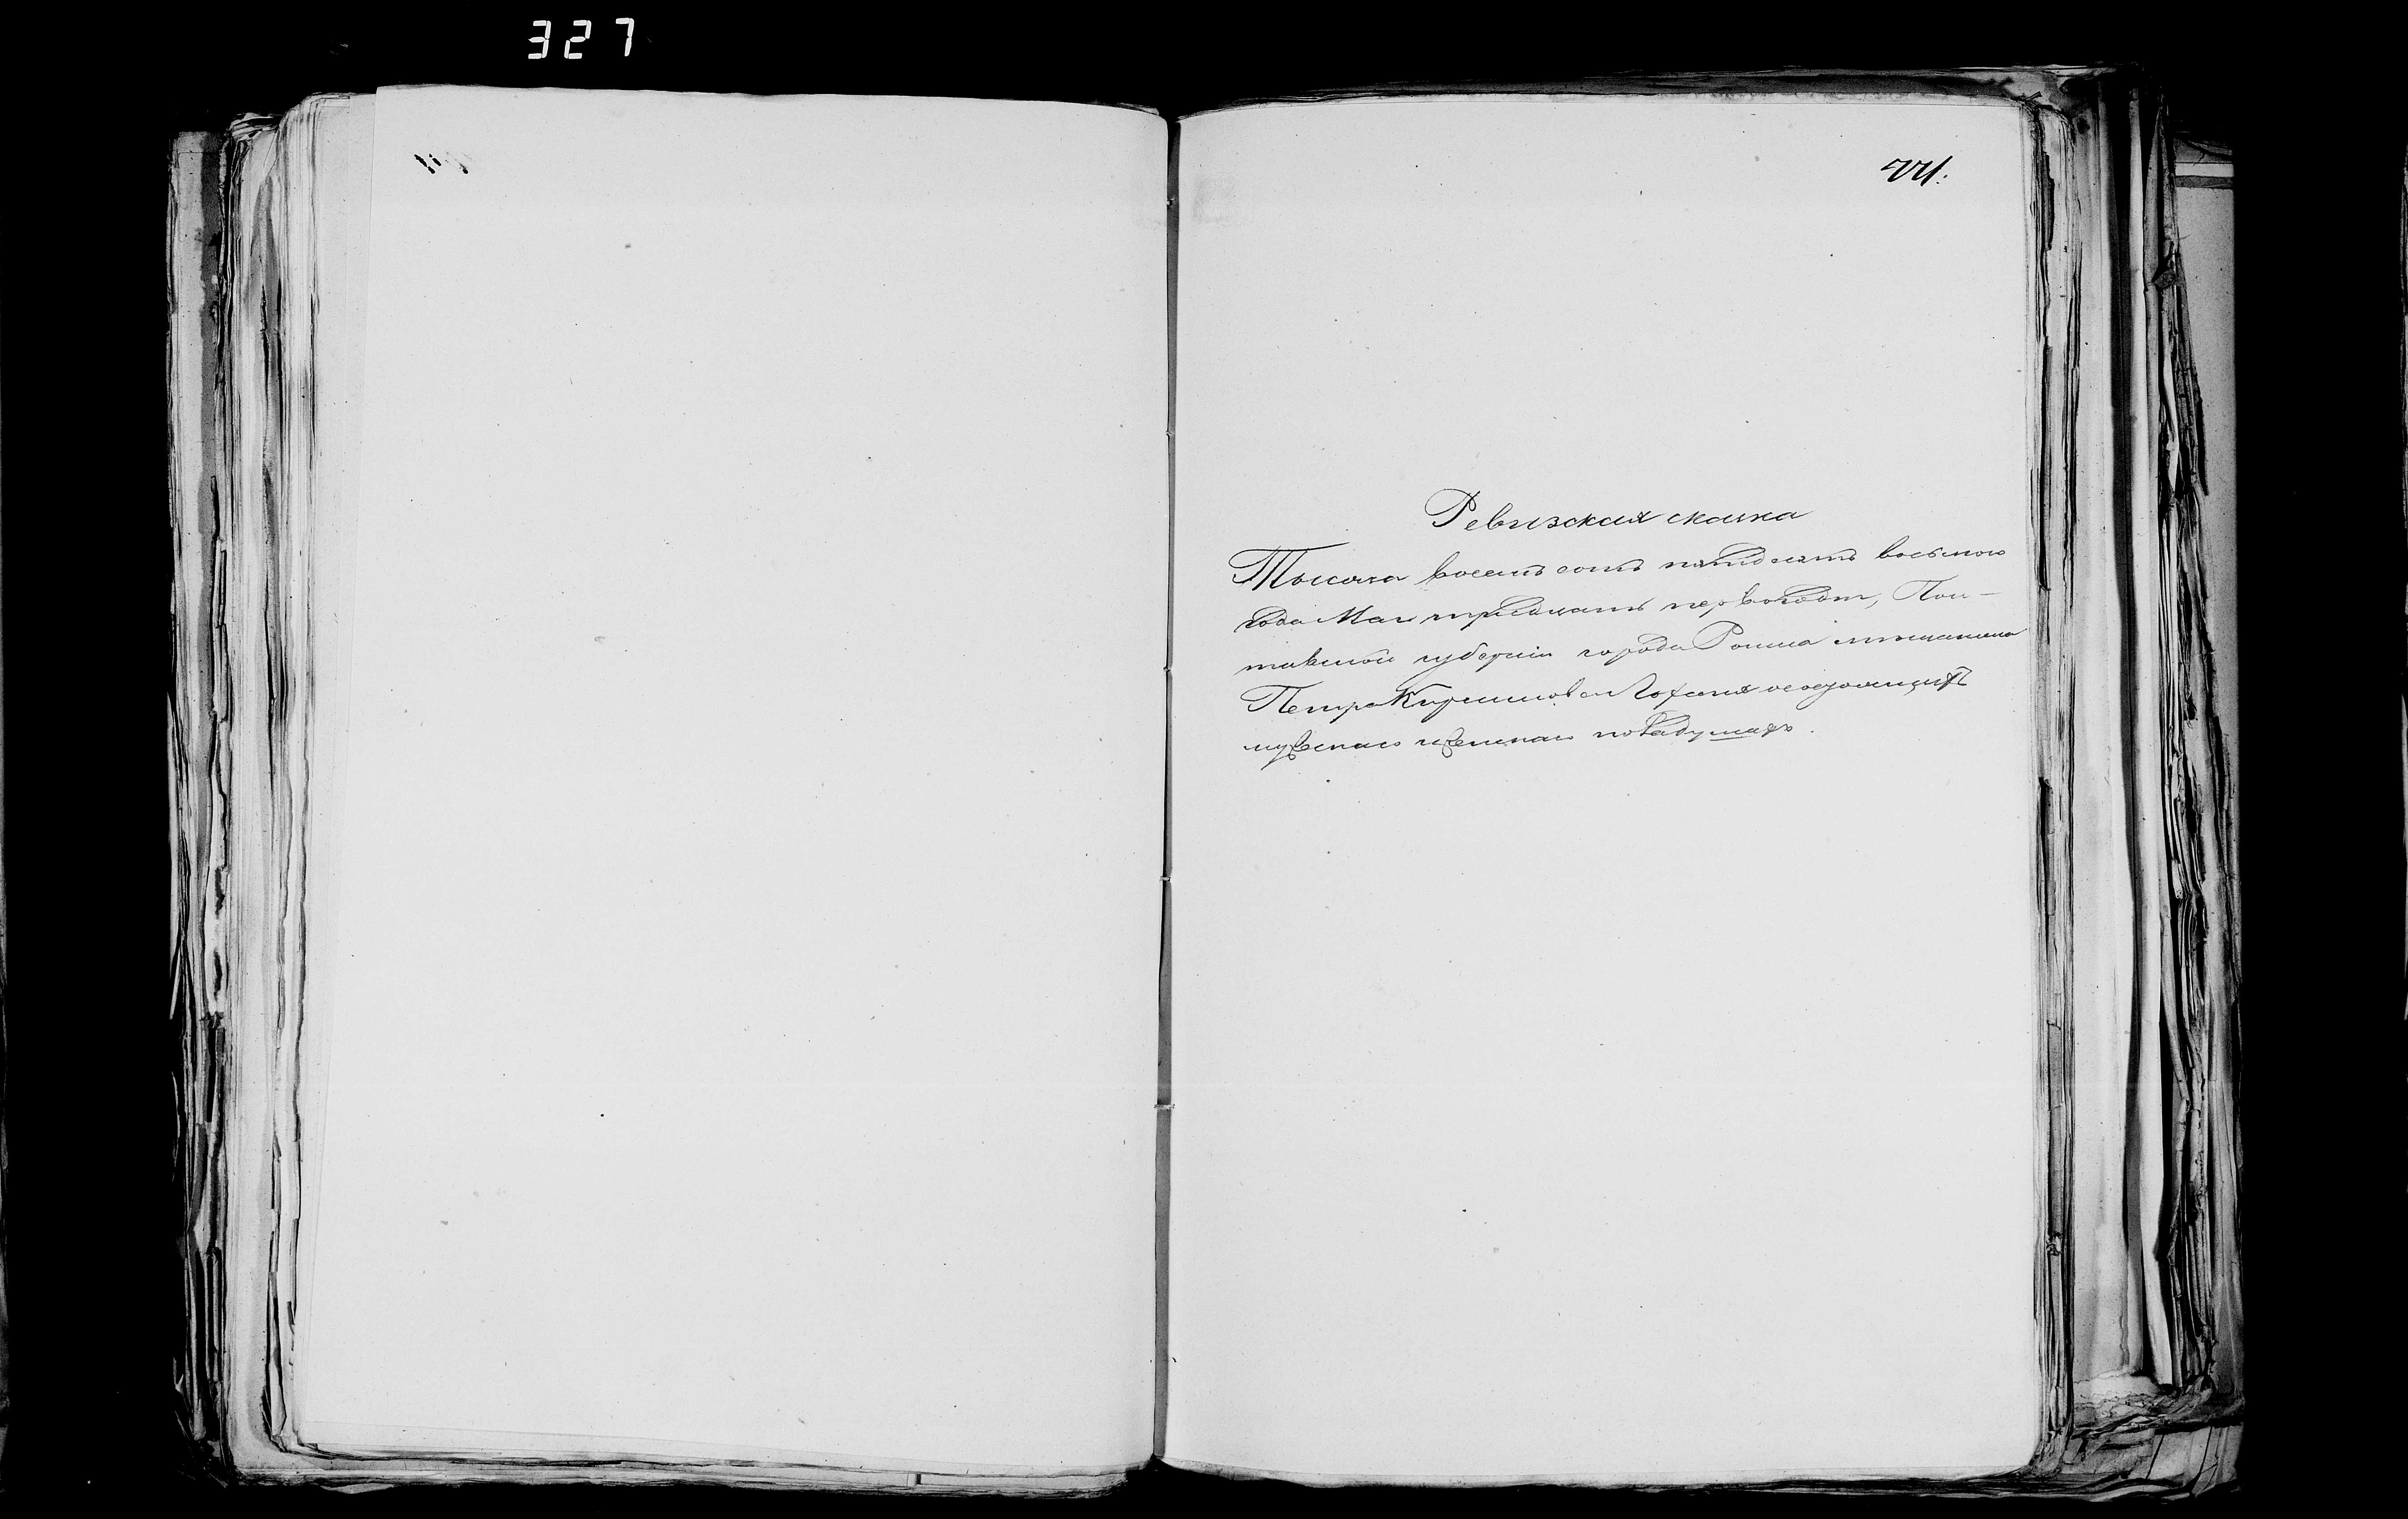 327
771.
Ревизская сказка
Тысяча восемь сотъ пятдесятъ восьмого
года Мая тридцать первого дня, Пол-
тавской губерніи города Ромна мѣщанина
Петра Кириллова сына о состоящихъ
мужеска и женска пола душахъ.